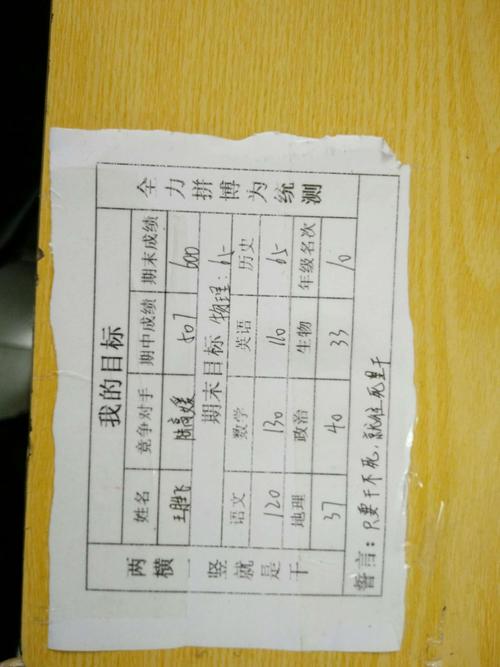 我的目标
两横一竖就是干
全力拼博为统测
姓名 竞争对手 期中成绩 期末成绩
王胜飞 陆高媛 507 600
期末目标 物理:85
语文 数学 英语 历史
120 130 110 65
地理 政治 生物 年级名次
37 40 33 10
誓言:只要干不死,就往死里干